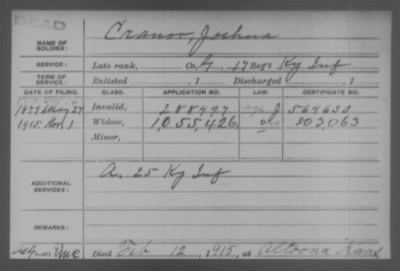 DEAD
NAME OF SOLDIER: Cranor, Joshua
SERVICE: Late rank, Co. G, 17 Reg't Ky Inf
TERM OF SERVICE: Enlisted , 1 Discharged , 1
DATE OF FILING. CLASS. APPLICATION NO. LAW. CERTIFICATE NO.
1879 May 27 Invalid, 288497 564632
1915 Nov. 1 Widow, 1,055,426. 803,063
Minor,
ADDITIONAL SERVICES: A. 25 Ky Inf
REMARKS:
Died Feb 12, 1915, at Altoona Kans